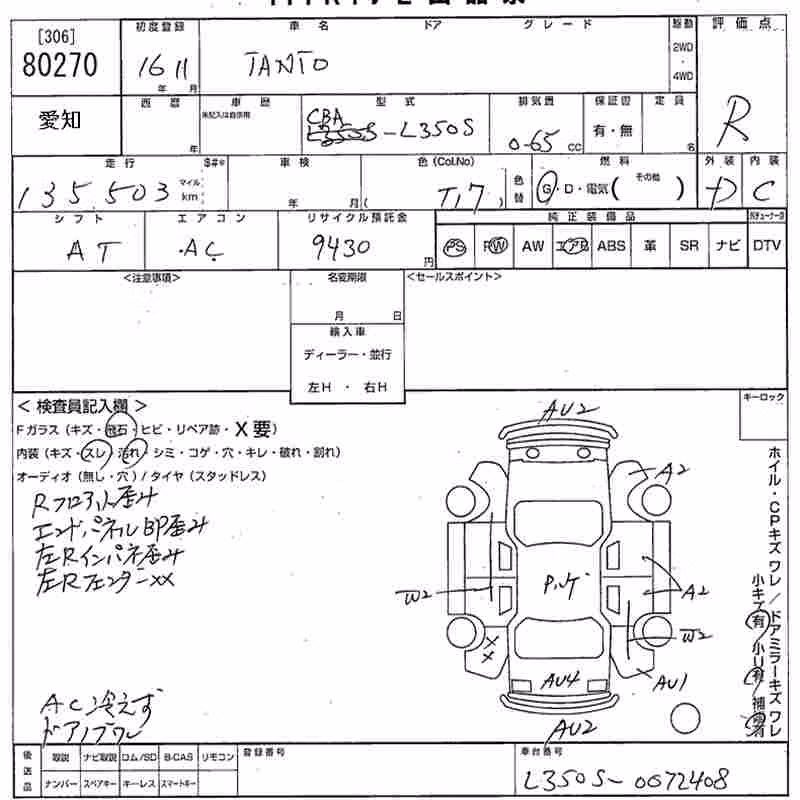 [306]
80270
初度登録
16 11
年 月
車名
ドア
グレード
TANTO
駆動
2WD
・
4WD
評価点
R
愛知
西暦
年
車歴
未記入は自家用
型式
CBA
L350S-L350S
排気量
0.65 cc
保証書
有・無
定員
名
走行
$#*
135,503
マイル
km
車検
年 月
色(Col.No)
( T17 )
色替
燃料
G・D・電気( その他 )
外装
D
内装
C
シフト
AT
エアコン
AC
リサイクル預託金
9430 円
純正装備品
PS PW AW エアB ABS 革 SR ナビ DTV
<注意事項>
名変期限
月 日
<セールスポイント>
輸入車
ディーラー・並行
左H ・ 右H
<検査員記入欄>
Fガラス(キズ・飛石・ヒビ・リペア跡・X要)
内装(キズ・スレ・汚れ・シミ・コゲ・穴・キレ・破れ・割れ)
オーディオ(無し・穴)/タイヤ(スタッドレス)
エンドパネルBP歪み
左Rインパネ歪み
左RフェンダーXX
AC冷えず
ドアノブワレ
キーロック
ホイル・CPキズワレ/ドアミラーキズワレ
小キズ有 小U有 補修有
AU2
A2
A2
W2
W2
P.ルケ
XX
AU4
AU1
AU2
後送品
取説 ナビ取説 ロム/SD B-CAS リモコン
ナンバー スペアキー キーレス スマートキー
登録番号
車台番号
L350S-0072408